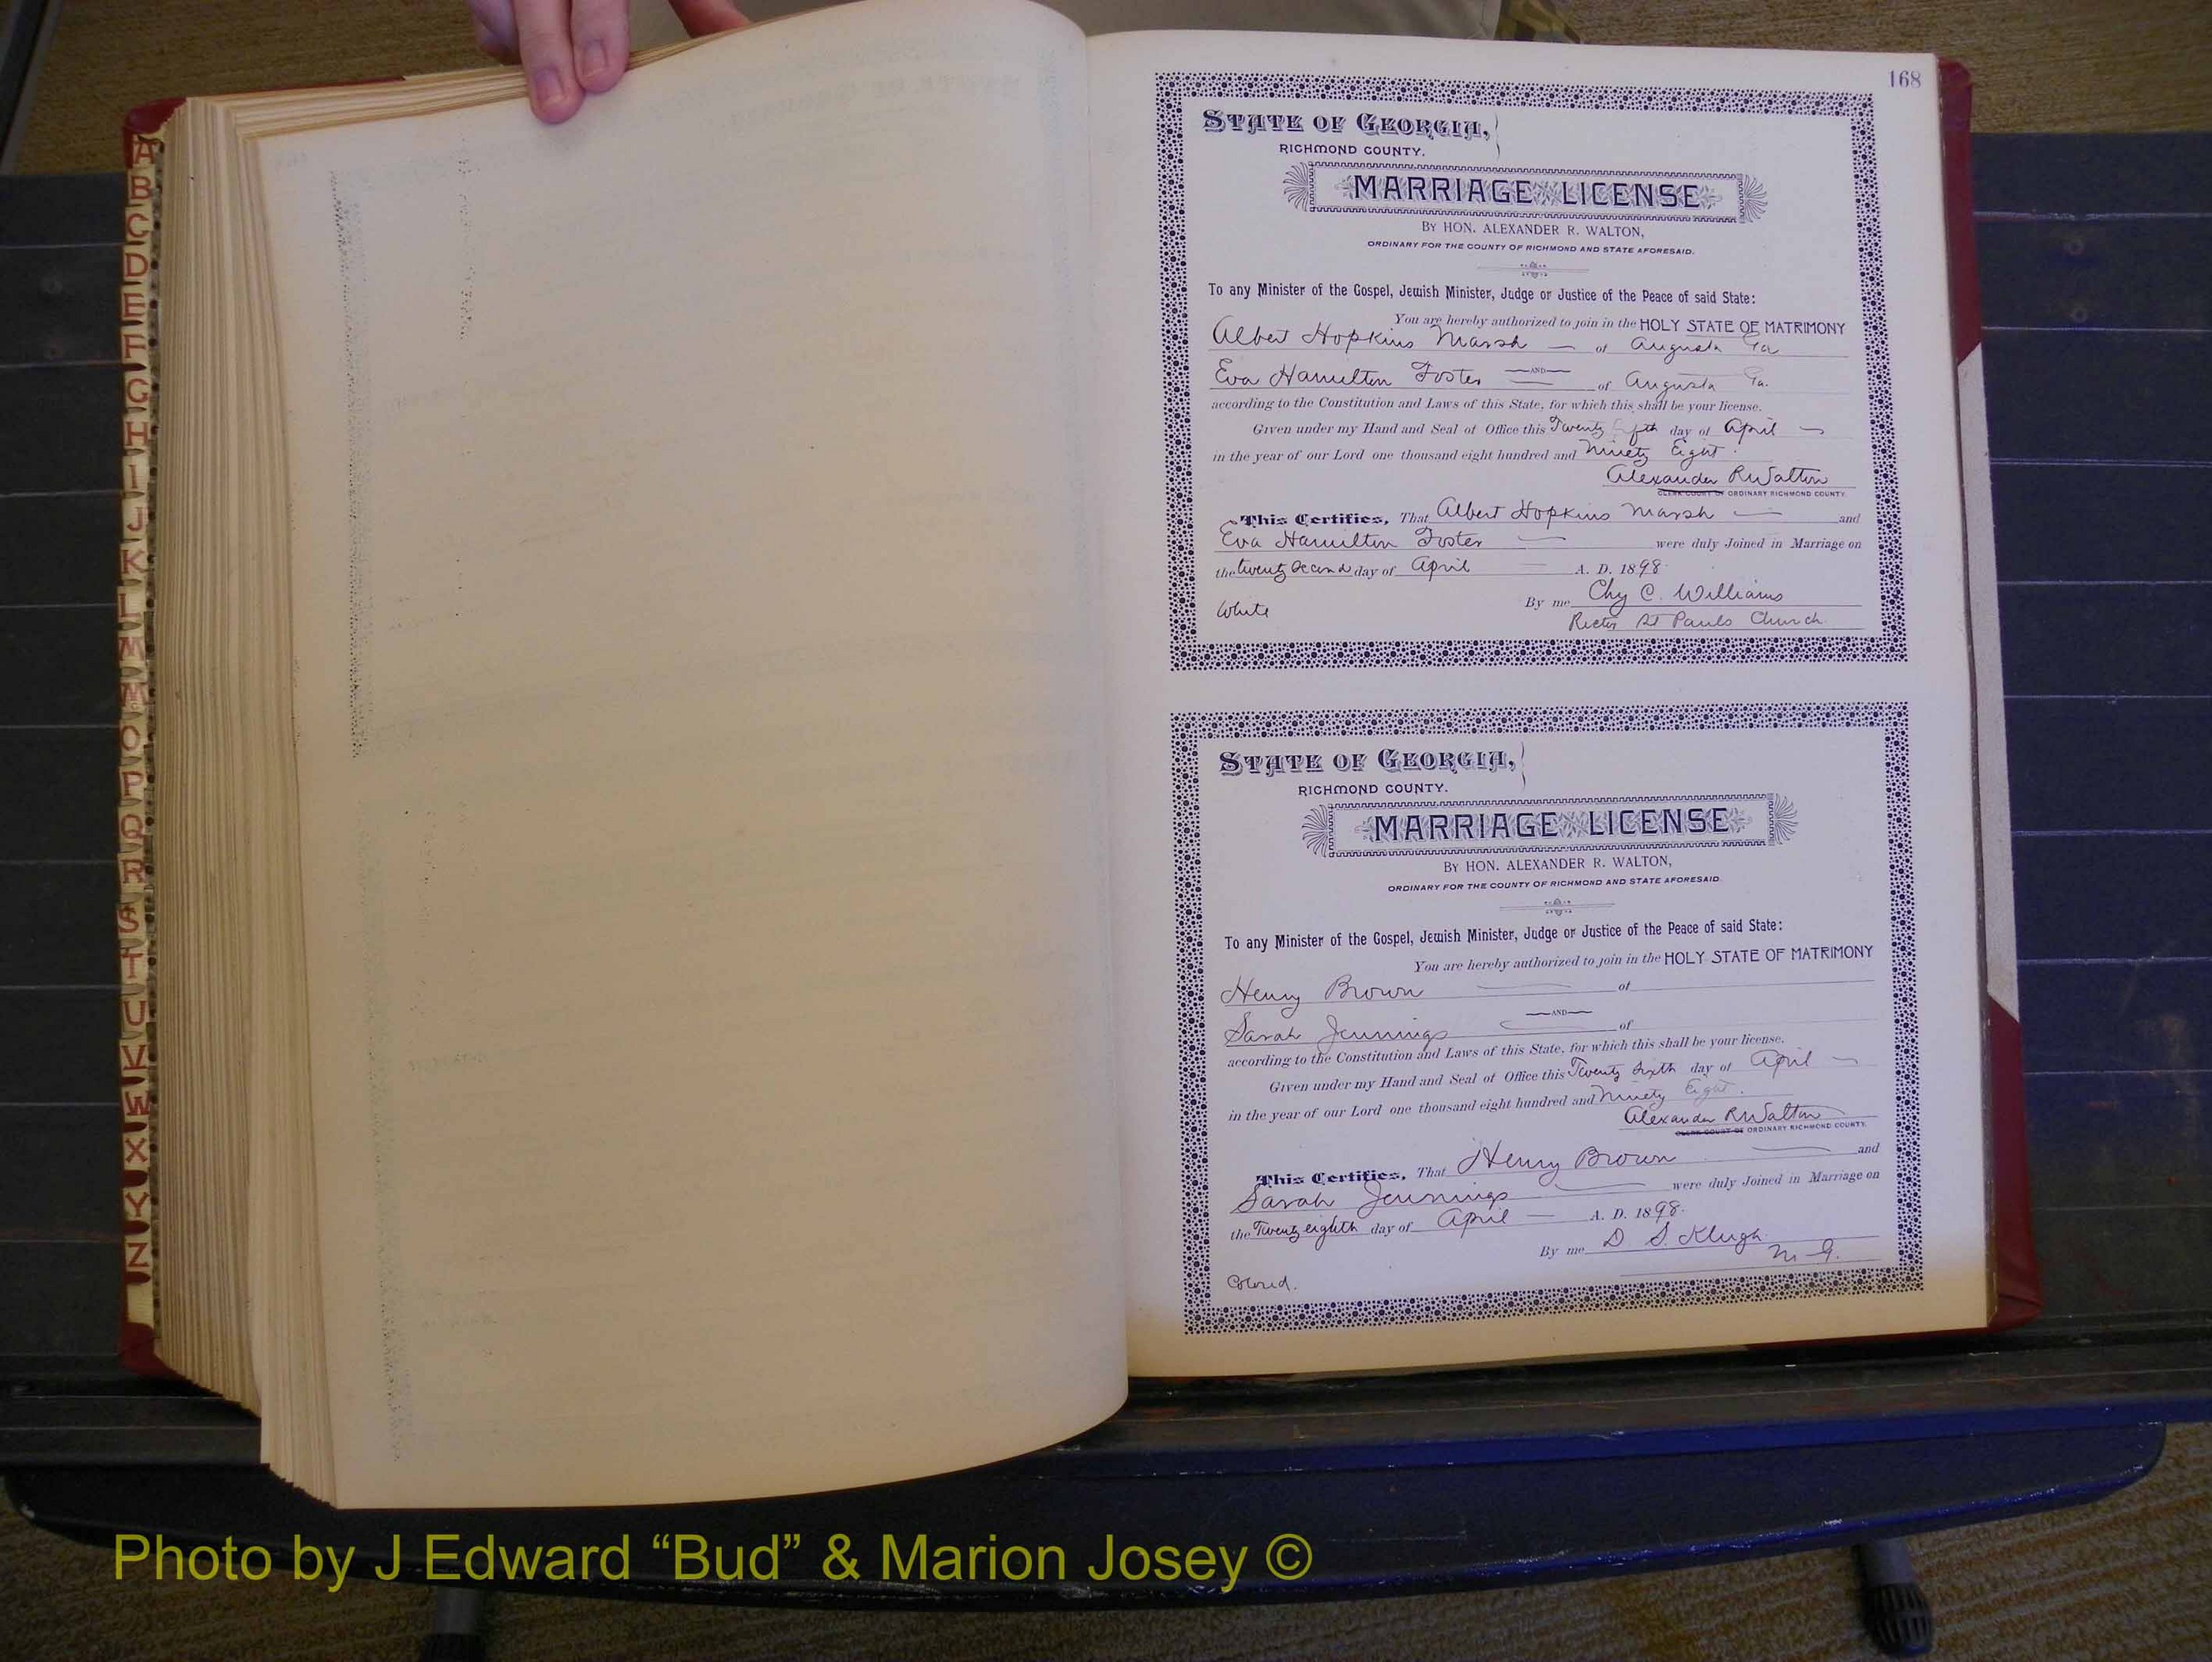 168
STATE OF GEORGIA,
RICHMOND COUNTY.
MARRIAGE LICENSE
BY HON. ALEXANDER R. WALTON,
ORDINARY FOR THE COUNTY OF RICHMOND AND STATE AFORESAID.
To any Minister of the Gospel, Jewish Minister, Judge or Justice of the Peace of said State:
You are hereby authorized to join in the HOLY STATE OF MATRIMONY
Albert Hopkins Marsh — of Augusta Ga
AND
Eva Hamilton Foster of Augusta Ga.
according to the Constitution and Laws of this State, for which this shall be your license.
Given under my Hand and Seal of Office this Twenty fifth day of April
in the year of our Lord one thousand eight hundred and Ninety Eight.
Alexander R Walton
CLERK COURT OF ORDINARY RICHMOND COUNTY.
This Certifies, That Albert Hopkins Marsh and
Eva Hamilton Foster were duly Joined in Marriage on
the twenty second day of April A. D. 1898.
By me Chy C. Williams
White
Rector St Pauls Church
STATE OF GEORGIA,
RICHMOND COUNTY.
MARRIAGE LICENSE
BY HON. ALEXANDER R. WALTON,
ORDINARY FOR THE COUNTY OF RICHMOND AND STATE AFORESAID.
To any Minister of the Gospel, Jewish Minister, Judge or Justice of the Peace of said State:
You are hereby authorized to join in the HOLY STATE OF MATRIMONY
Henry Brown of
AND
Sarah Jennings of
according to the Constitution and Laws of this State, for which this shall be your license.
Given under my Hand and Seal of Office this Twenty sixth day of April
in the year of our Lord one thousand eight hundred and Ninety Eight.
Alexander R Walton
CLERK COURT OF ORDINARY RICHMOND COUNTY.
This Certifies, That Henry Brown and
Sarah Jennings were duly Joined in Marriage on
the Twenty eighth day of April A. D. 1898.
By me D S. Klugh
M G.
Colored.
A
B
C
D
E
F
G
H
I
J
K
L
M
Mc
O
P
Q
R
S
T
U
V
W
X
Y
Z
Photo by J Edward “Bud” & Marion Josey ©